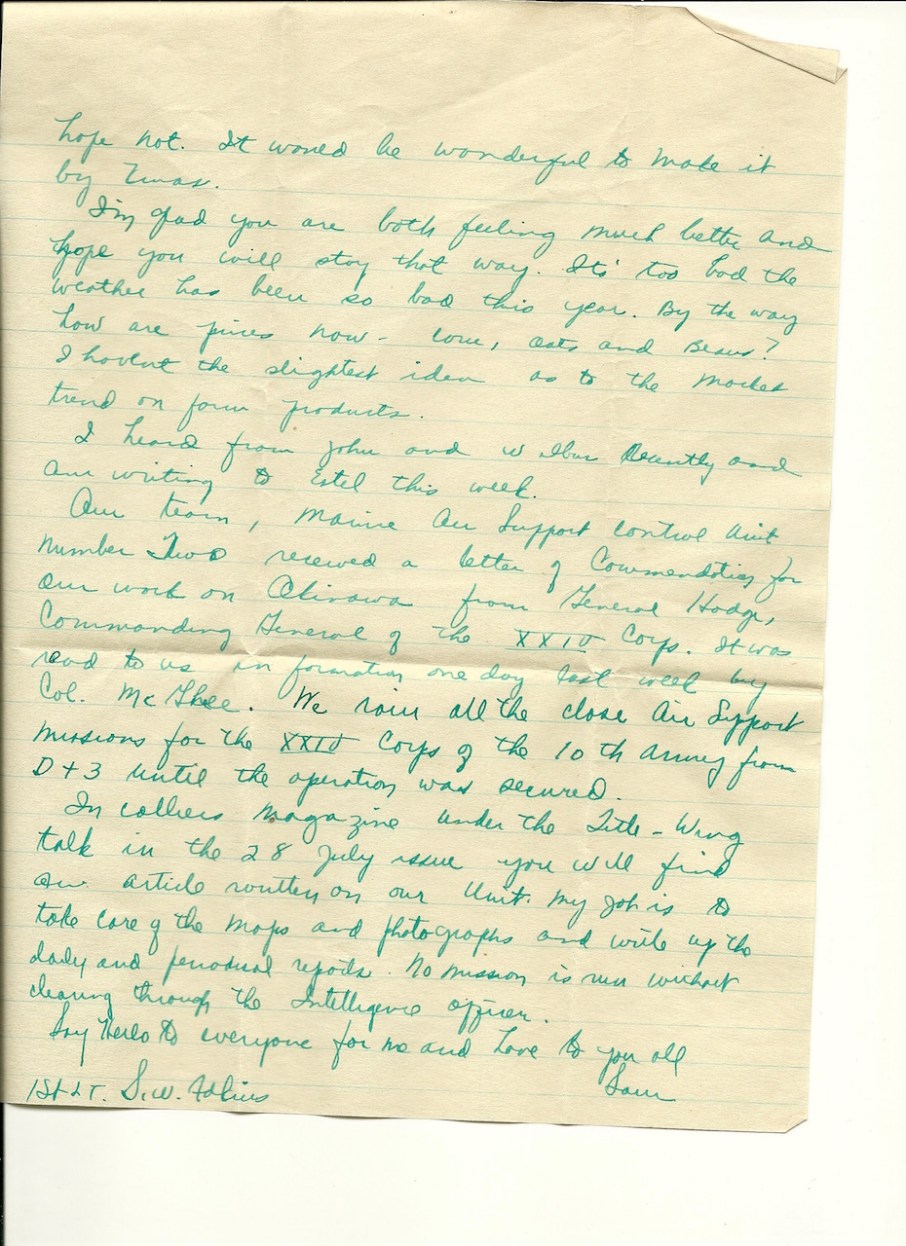 hope not. It would be wonderful to make it
by Xmas.
I'm glad you are both feeling much better and
hope you will stay that way. Its' too bad the
weather has been so bad this year. By the way
how are prices now - corn, oats and Beans?
I havent the slightest idea as to the market
trend on farm products.
I heard from John and Wilbur recently and
am writing to Estel this week.
Our team, Marine Air Support Control Unit
Number Two received a letter of Commendation for
our work on Okinawa from General Hodge,
Commanding General of the XXIV Corps. It was
read to us in formation one day last week by
Col. McGhee. We ran all the close Air Support
missions for the XXIV Corps of the 10th Army from
D+3 until the operation was secured.
In colliers magazine under the Title - Wing
talk in the 28 July issue you will find
an article written on our Unit. My job is to
take care of the maps and photographs and write up the
daily and periodical reports. No mission is run without
clearing through the Intelligence officer.
Say Hello to everyone for me and Love to you all
Sam
1st LT. S.W.